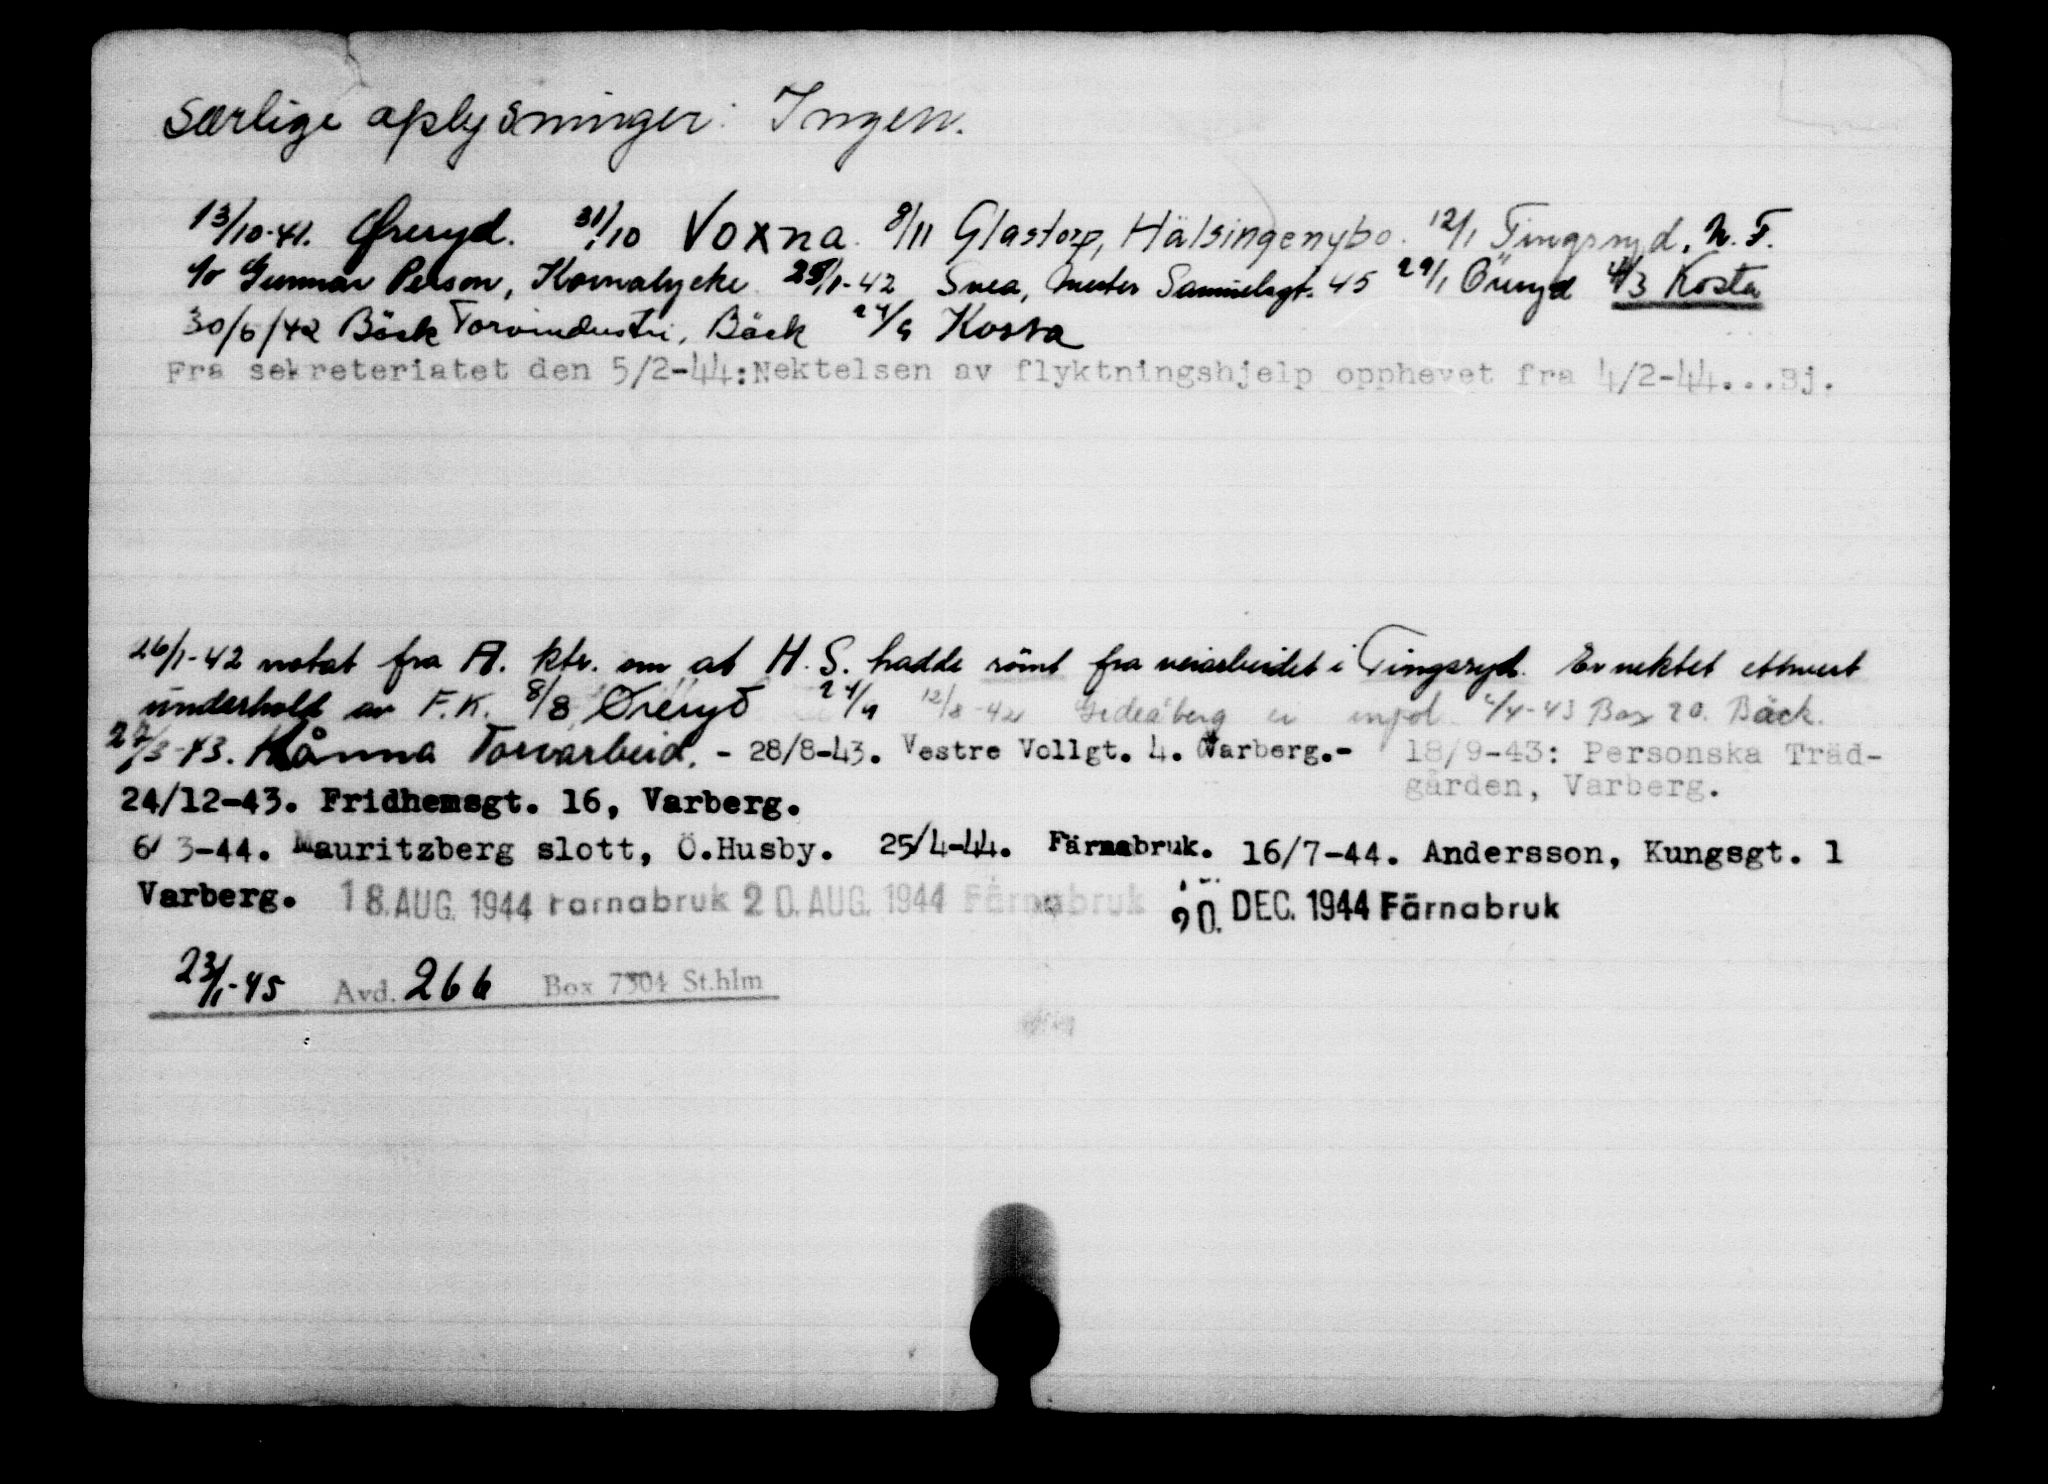 Særlige oplysninger: Ingen.
13/10-41. Øreryd. 31/10 Voxna. 8/11 Glastorp, Hälsingenybo. 12/1 Tingsryd, N. F.
c/o Gunnar Person, Kornalycke 25/1-42 Svea, Mester Samuelsgt. 45 29/1 Öreryd 4/3 Kosta
30/6/42 Bäck Torvindustri, Bäck 24/9 Kosta
Fra sekreteriatet den 5/2-44:Nektelsen av flyktningshjelp opphevet fra 4/2-44...Bj.
26/1-42 notat fra A. ktr. om at H. S. hadde römt fra veiarbeidet i Tingsryd. Er nektet ethvert
underhold av F.K. 8/8 Øreryd 24/9 12/8-42 Gideåberg 2/4-43 Box 20. Bäck.
27/3-43. Hånna Torvarbeid. - 28/8-43. Vestre Vollgt. 4. Varberg.- 18/9-43: Personska Träd-
gården, Varberg.
24/12-43. Fridhemsgt. 16, Varberg.
6/3-44. Mauritzberg slott, Ö.Husby. 25/4-44. Färnabruk. 16/7-44. Andersson, Kungsgt. 1
Varberg. 18. AUG. 1944 Färnabruk 20. AUG. 1944 Färnabruk 20. DEC. 1944 Färnabruk
23/1-45 Avd. 266 Box 7304 St.hlm